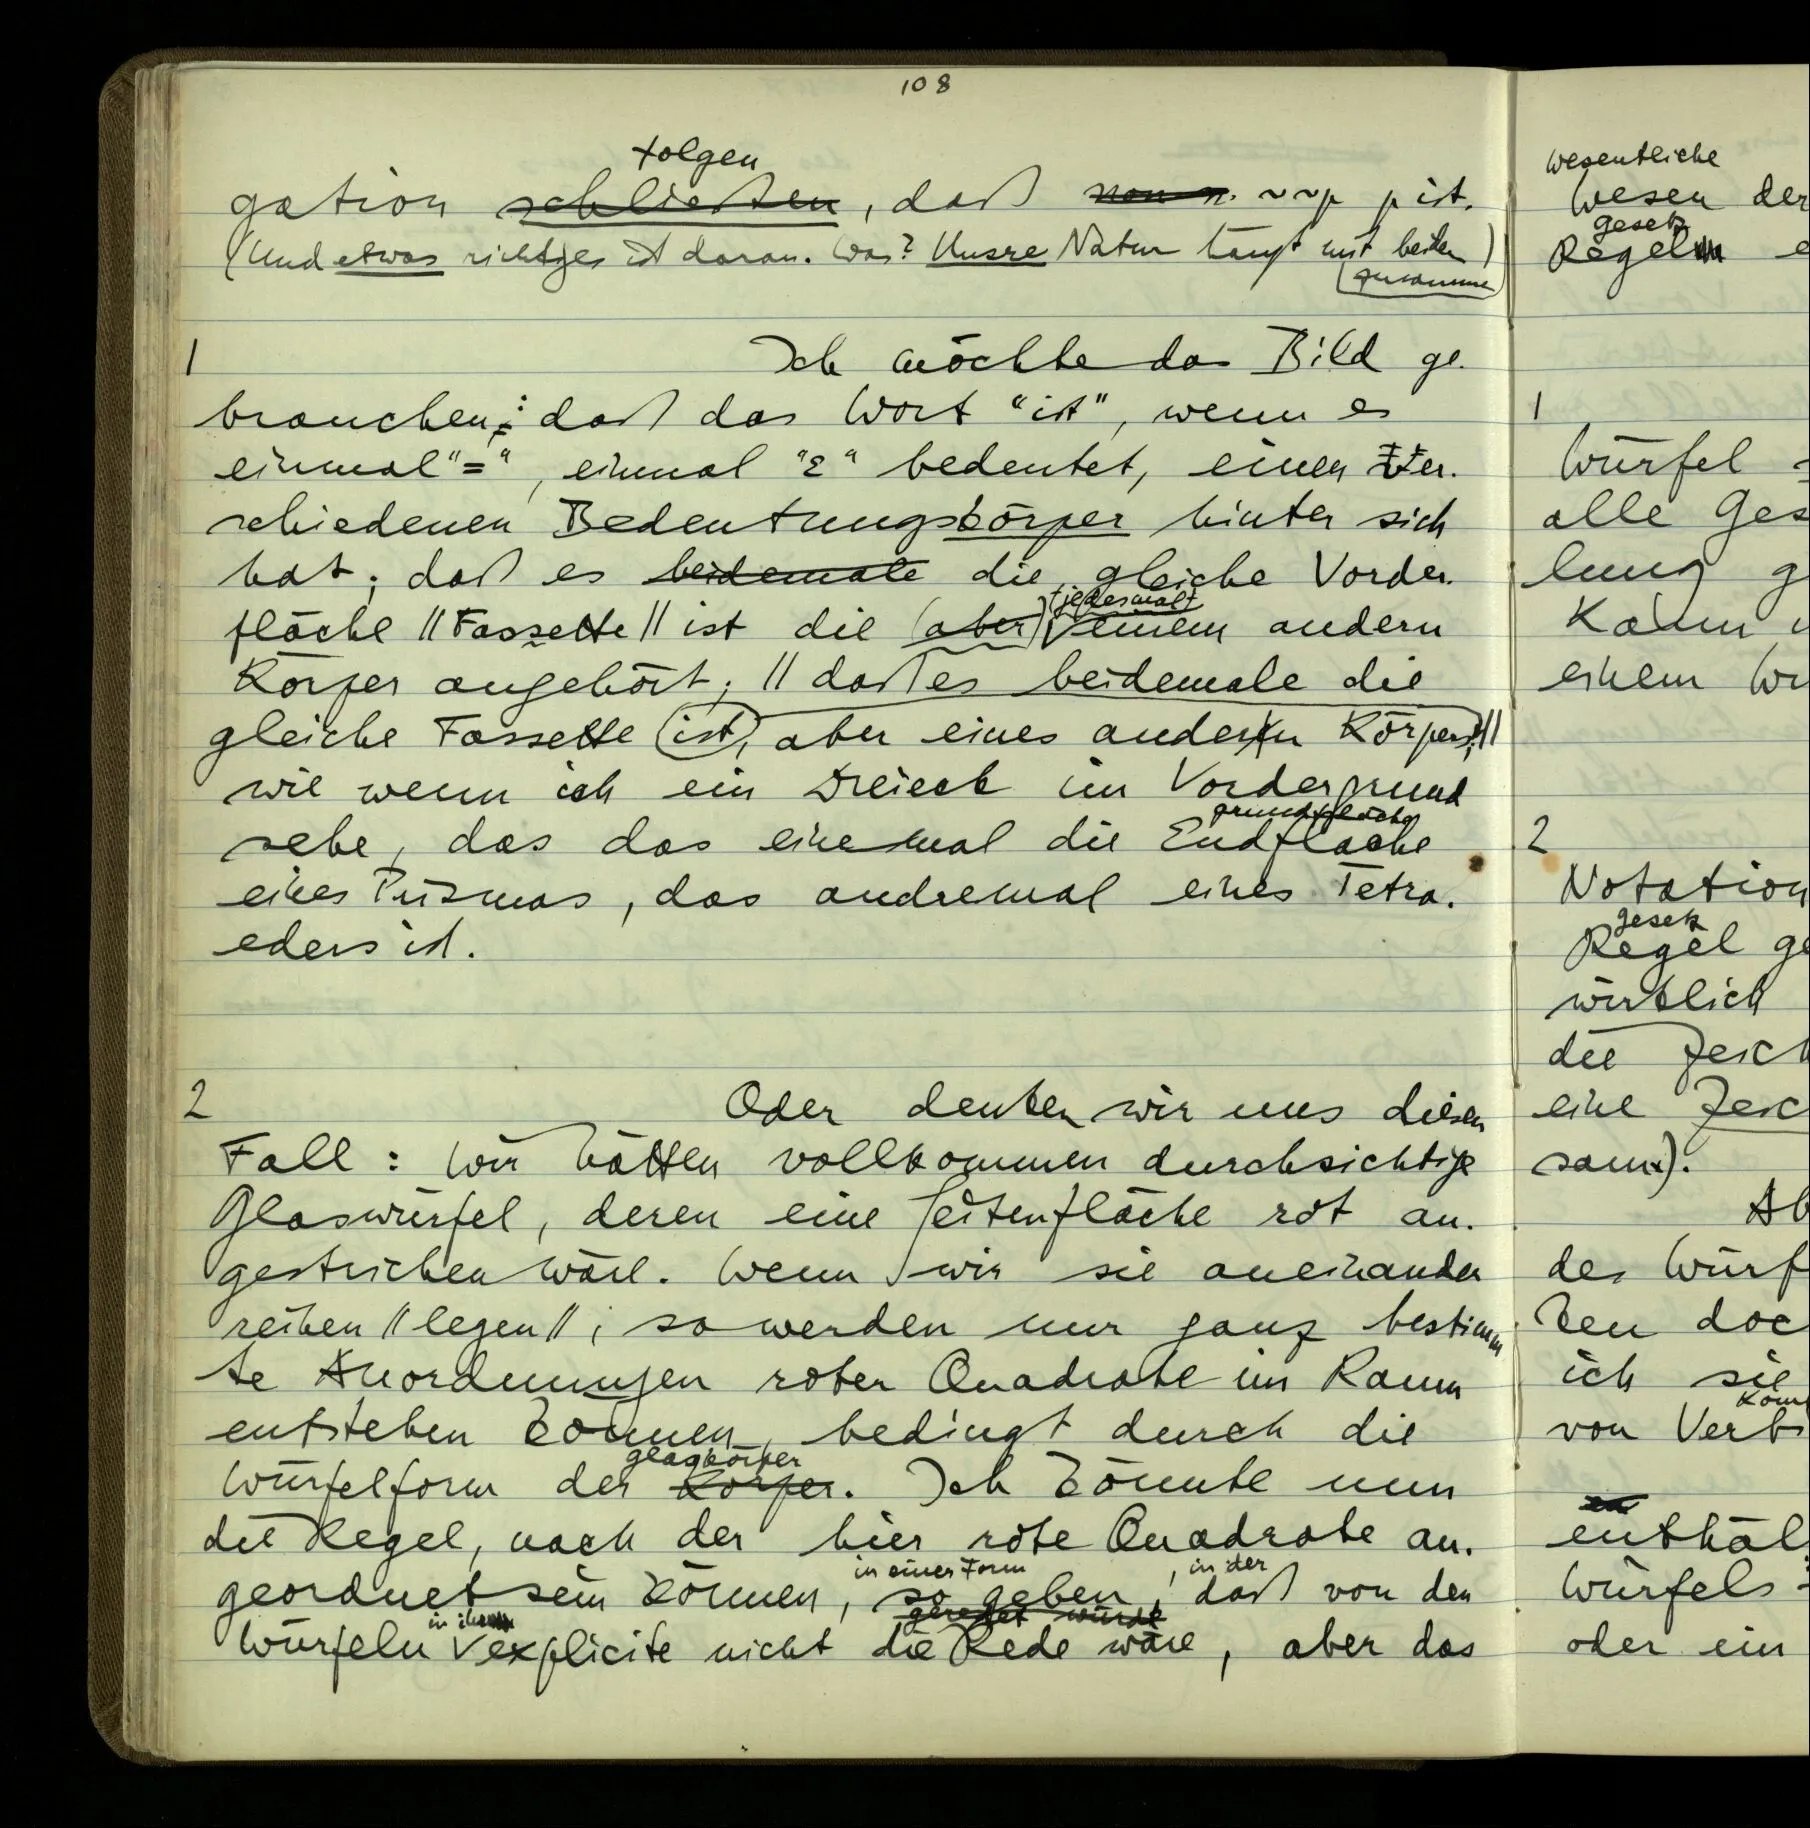 108
folgen
gation schließen, daß non n. ~~p p ist.
(Und etwas richtiges ist daran. Was? Unsre Natur hängt mit beiden
zusammen)
1
Ich möchte das Bild ge-
brauchen: daß das Wort "ist", wenn es
einmal "=", einmal "ε" bedeutet, einen ver-
schiedenen Bedeutungskörper hinter sich
hat; daß es beidemale die gleiche Vorder-
jedesmal
fläche // Fassette // ist die (aber) einem andern
Körper angehört; // daß es beidemale die
gleiche Fassette ist, aber eines andern Körpers; //
wie wenn ich ein Dreieck im Vordergrund
grundfläche
sehe, das das eine mal die Endfläche
eines Prismas, das andremal eines Tetra-
eders ist.
2
Oder denken wir uns diesen
Fall: Wir hätten vollkommen durchsichtige
Glaswürfel, deren eine Seitenfläche rot an-
gestrichen wäre. Wenn wir sie aneinander
reihen // legen //, so werden nur ganz bestimm
te Anordnungen roter Quadrate im Raum
entstehen können, bedingt durch die
Glaskörper
Würfelform der Körper. Ich könnte nun
die Regel, nach der hier rote Quadrate an-
in einer Form , in der
geordnet sein können, so geben, daß von den
in ihr geredet würde
Würfeln explicite nicht die Rede wäre, aber das
wesentliche
Wesen der
gesetz
Regel
1
Würfel
alle Ges
lung g
Kann
einem Wü
2
Notation
gesetz
Regel ge
wirklich
die Zeich
eine Zeic
sam).
Ab
des Würf
ken doc
ich sie
Kom
von Verb
enthäl
Würfels
oder ein